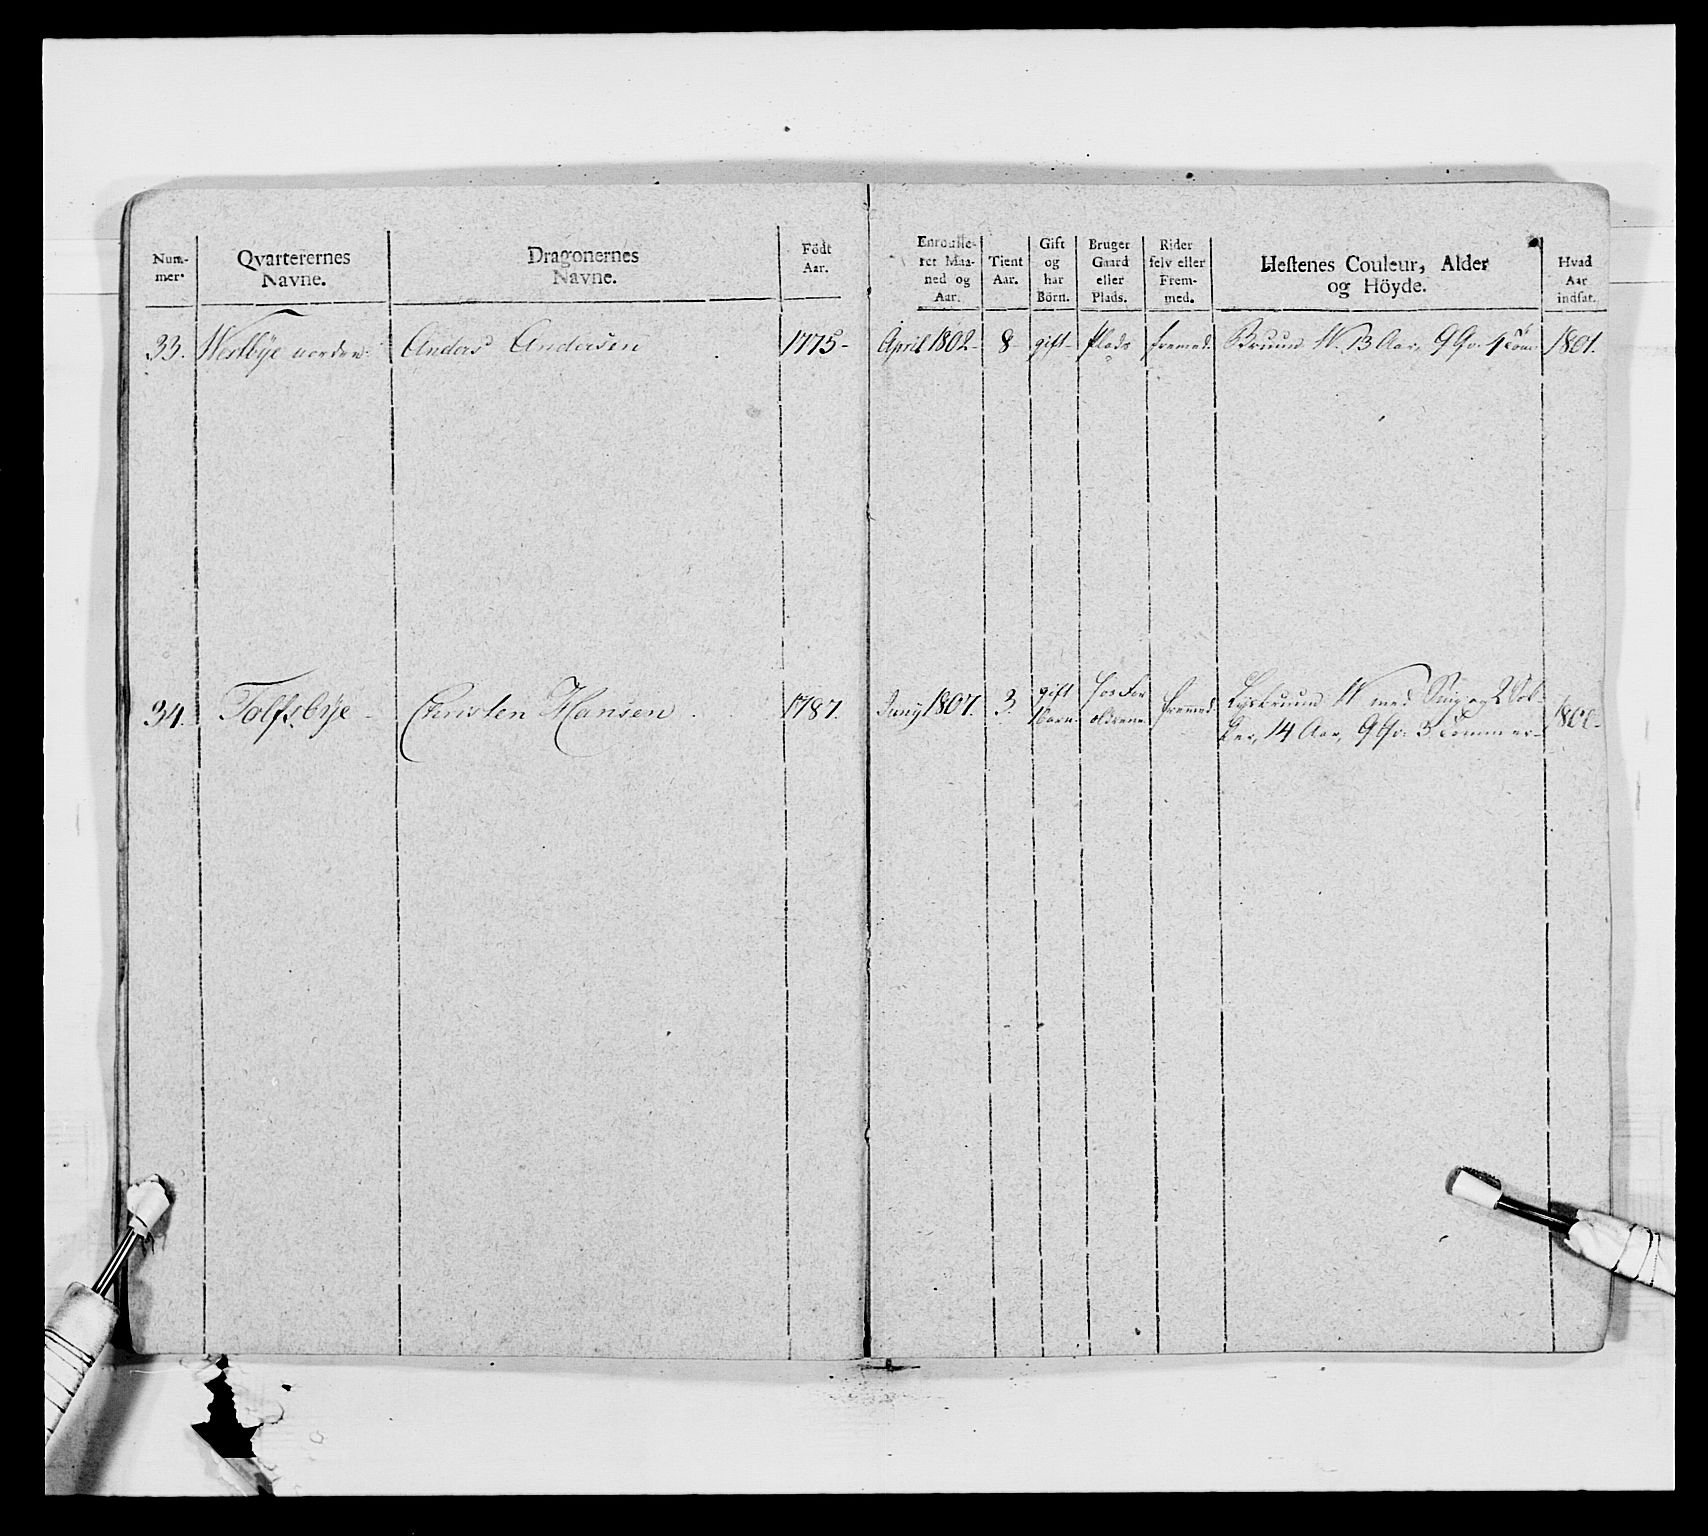 Num-
mer.
Qvarterernes
Navne.
Dragonernes
Navne.
Födt
Aar.
Enroulle-
ret Maa-
ned og
Aar.
Tient
Aar.
Gift
og
har
Börn.
Bruger
Gaard
eller
Plads.
Rider
selv eller
Frem-
med.
Hestenes Couleur, Alder
og Höyde.
Hvad
Aar
indsat.
33. Westbÿe norden Anders Andersen 1775- April 1802- 8- gift- Plads fremed. Bruun W. 13 Aar, 9 Qr. 4 Tom 1801.
34. Tolfsbÿe - Christen Hansen 1787. Junÿ 1807. 3. gift
1 Barn. hos For
ældrene fremed. Lysbruun W med Snip og 2 Sok-
ker, 14 Aar, 9 Qr. 3 Tommer- 1800-